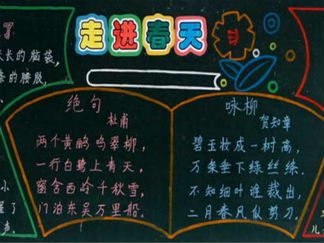 走进春天
长的脑袋,
的腰肢
小
了
声
绝句
杜甫
两个黄鹂鸣翠柳,
一行白鹭上青天,
窗含西岭千秋雪,
门泊东吴万里船.
咏柳
贺知章
碧玉妆成一树高,
万条垂下绿丝绦.
不知细叶谁裁出,
二月春风似剪刀.